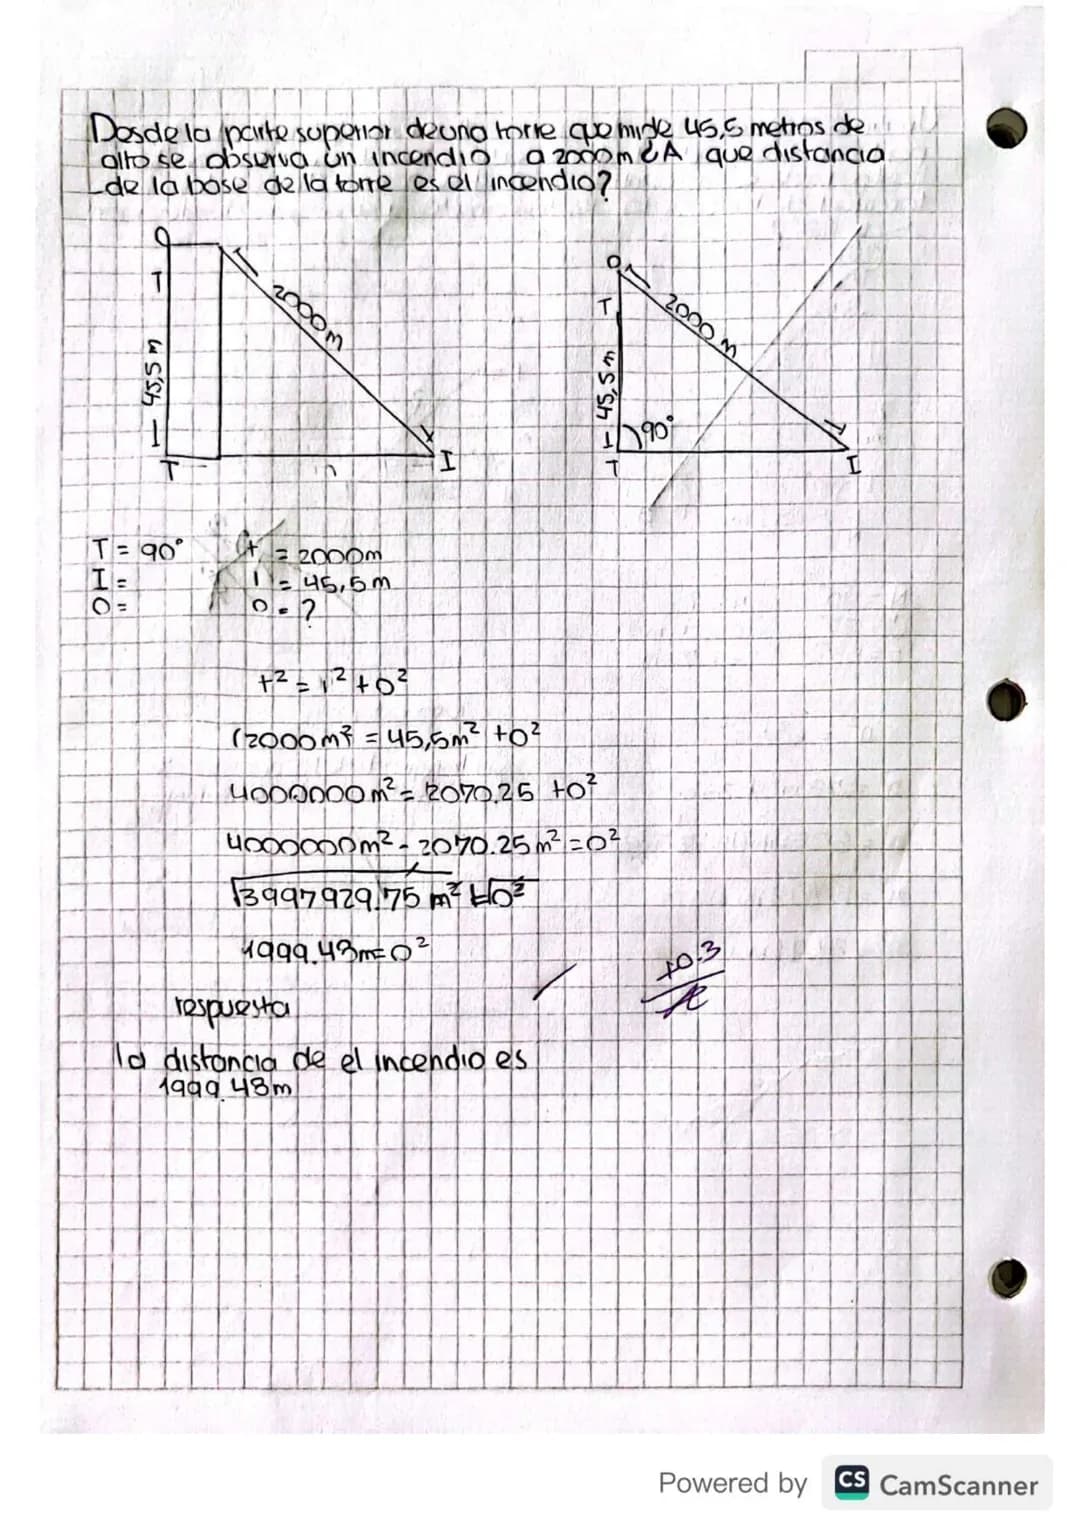 Desde la parte superior de una torre que mide 45,5 metros de
alto se observa un incendio a 2000m ¿A que distancia
de la base de la torre es el incendio?
O
T
45,5 m
T
2000m
I
O
T
45,5 m
T
2000 m
90°
I
T = 90°
I =
O =
t = 2000m
i = 45,5m
o = ?
t² = i² + o²
(2000m² = 45,5m² + o²
4000000m² = 2070.25 + o²
4000000m² - 2070.25m² = o²
√3997929.75 m² = √o²
1999.48m = o²
+0.3
respuesta
la distancia de el incendio es
1999.48m
Powered by CS CamScanner